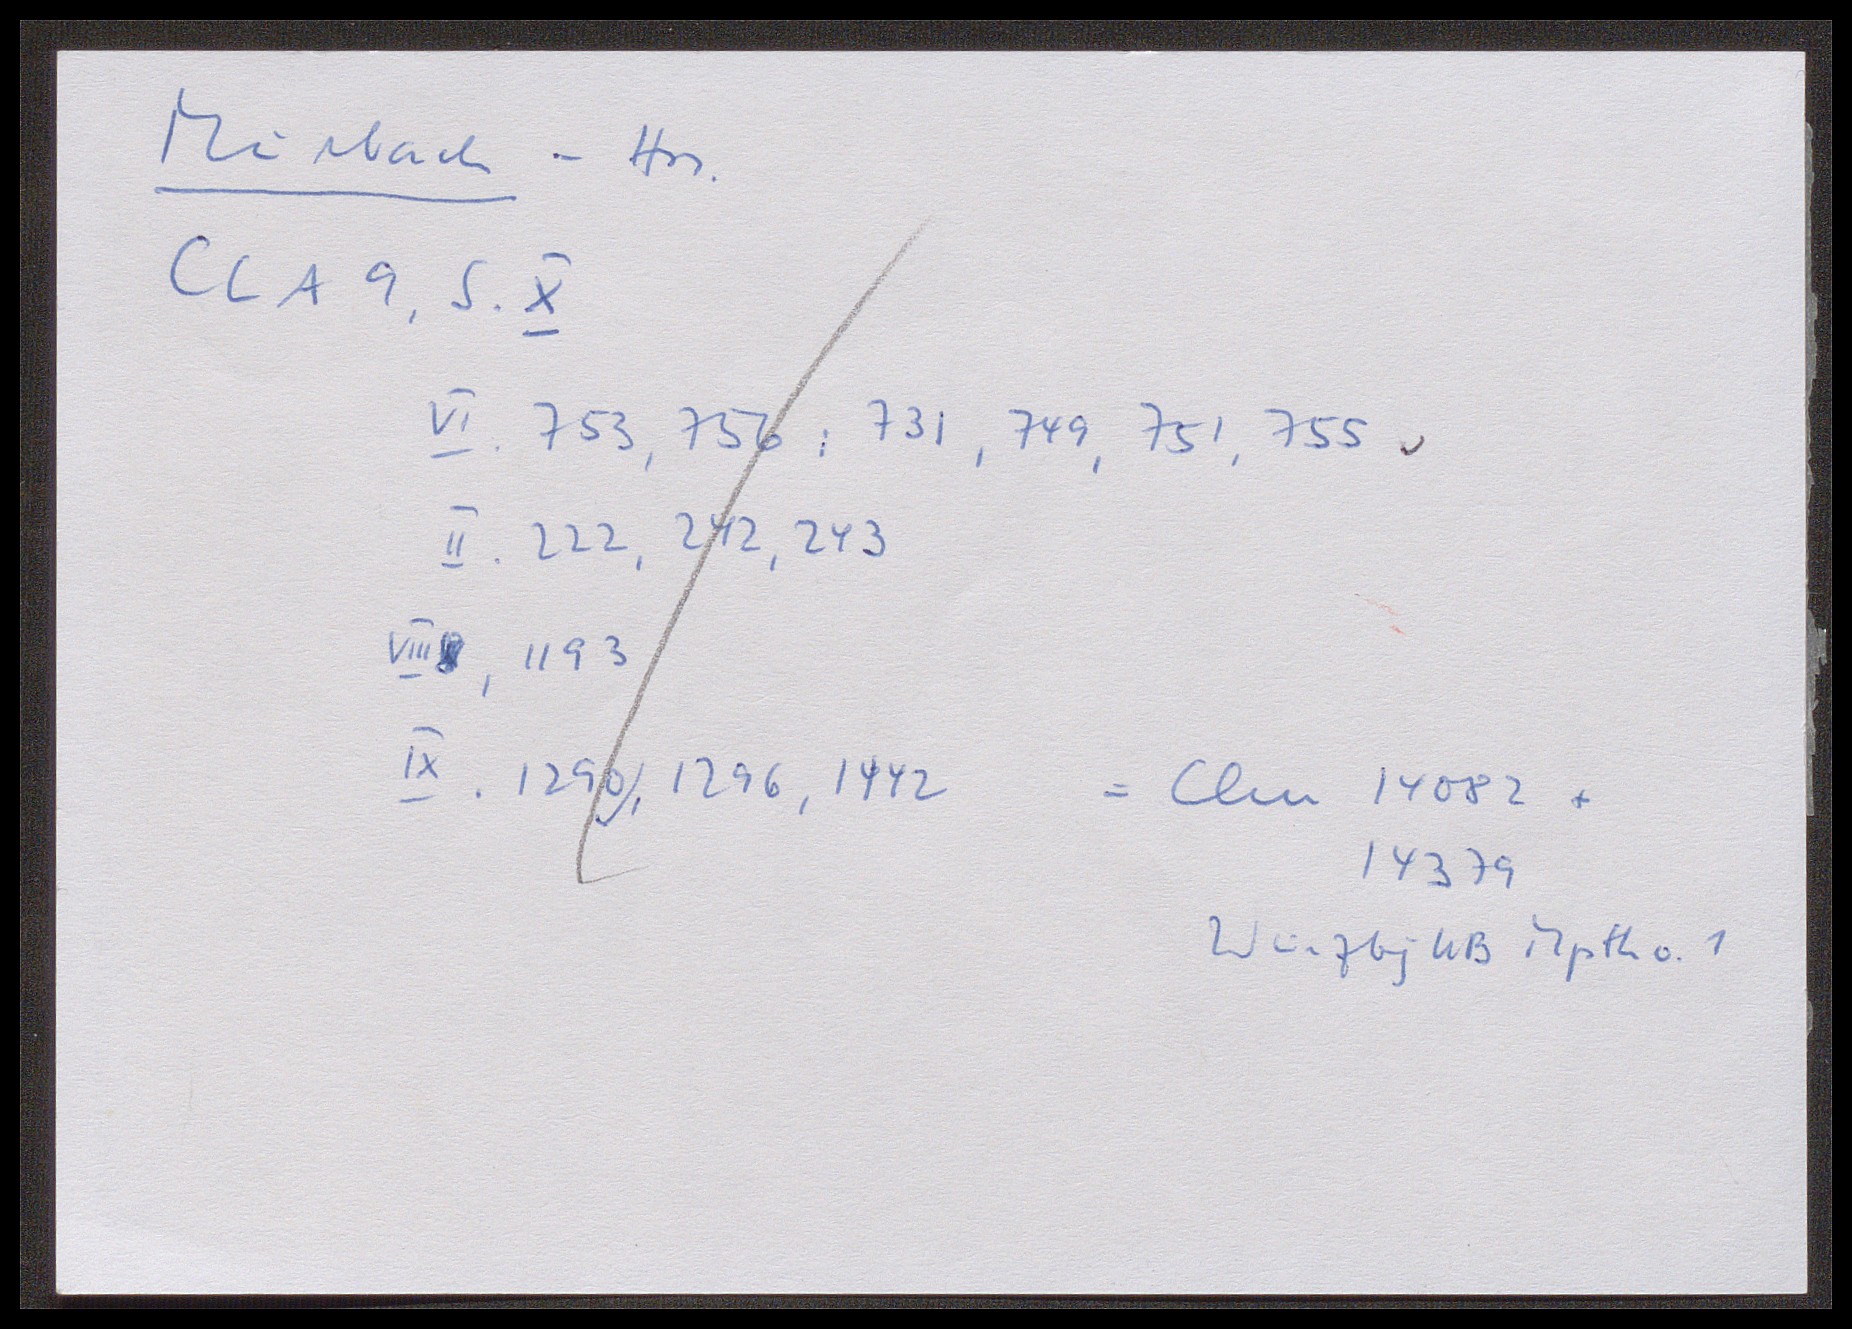 Murbach - Hss.
CLA 9, S. X
VI. 753, 756; 731, 749, 751, 755
II. 222, 242, 243
VIII, 1193
IX. 1290, 1296, 1442 = Clm 14082 +
14379
Würzbg UB Mpth o. 1